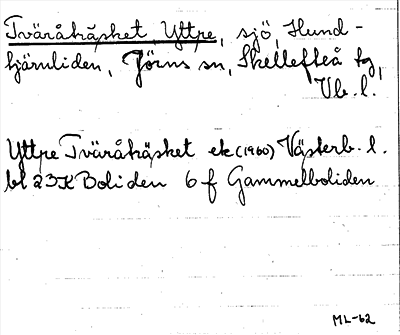 Tväråträsket, Yttre, sjö, Hund-
tjärnliden, Jörns sn, Skellefteå tg,
Vb. l.
Yttre Tväråträsket ek (1960) Västerb. l.
bl 23K Boliden 6 f Gammelboliden
ML-62